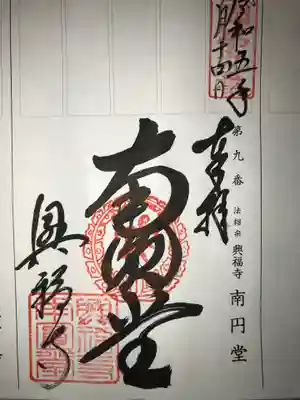 令和五年
月十四日
奉拝
第九番 法相宗 興福寺 南円堂
南円堂
興福寺